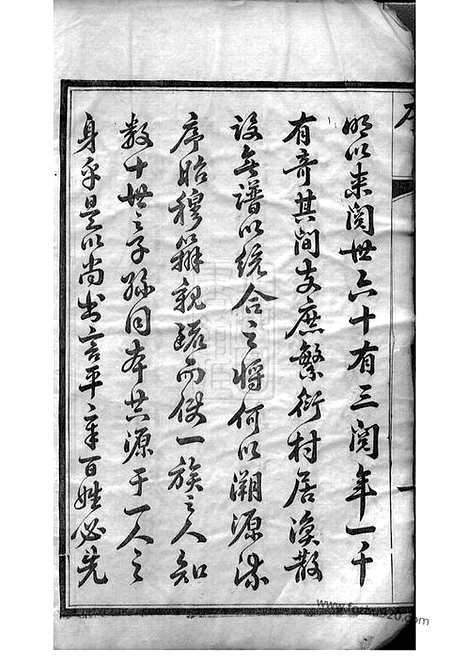 明以来阅世六十有三阅年一千
有奇其间支庶繁衍村居涣散
设无谱以统合之将何以溯源流
序昭穆辨亲疏而使一族之人知
数十世之子孙同本共源于一人之
身乎是以尚书言平章百姓必先